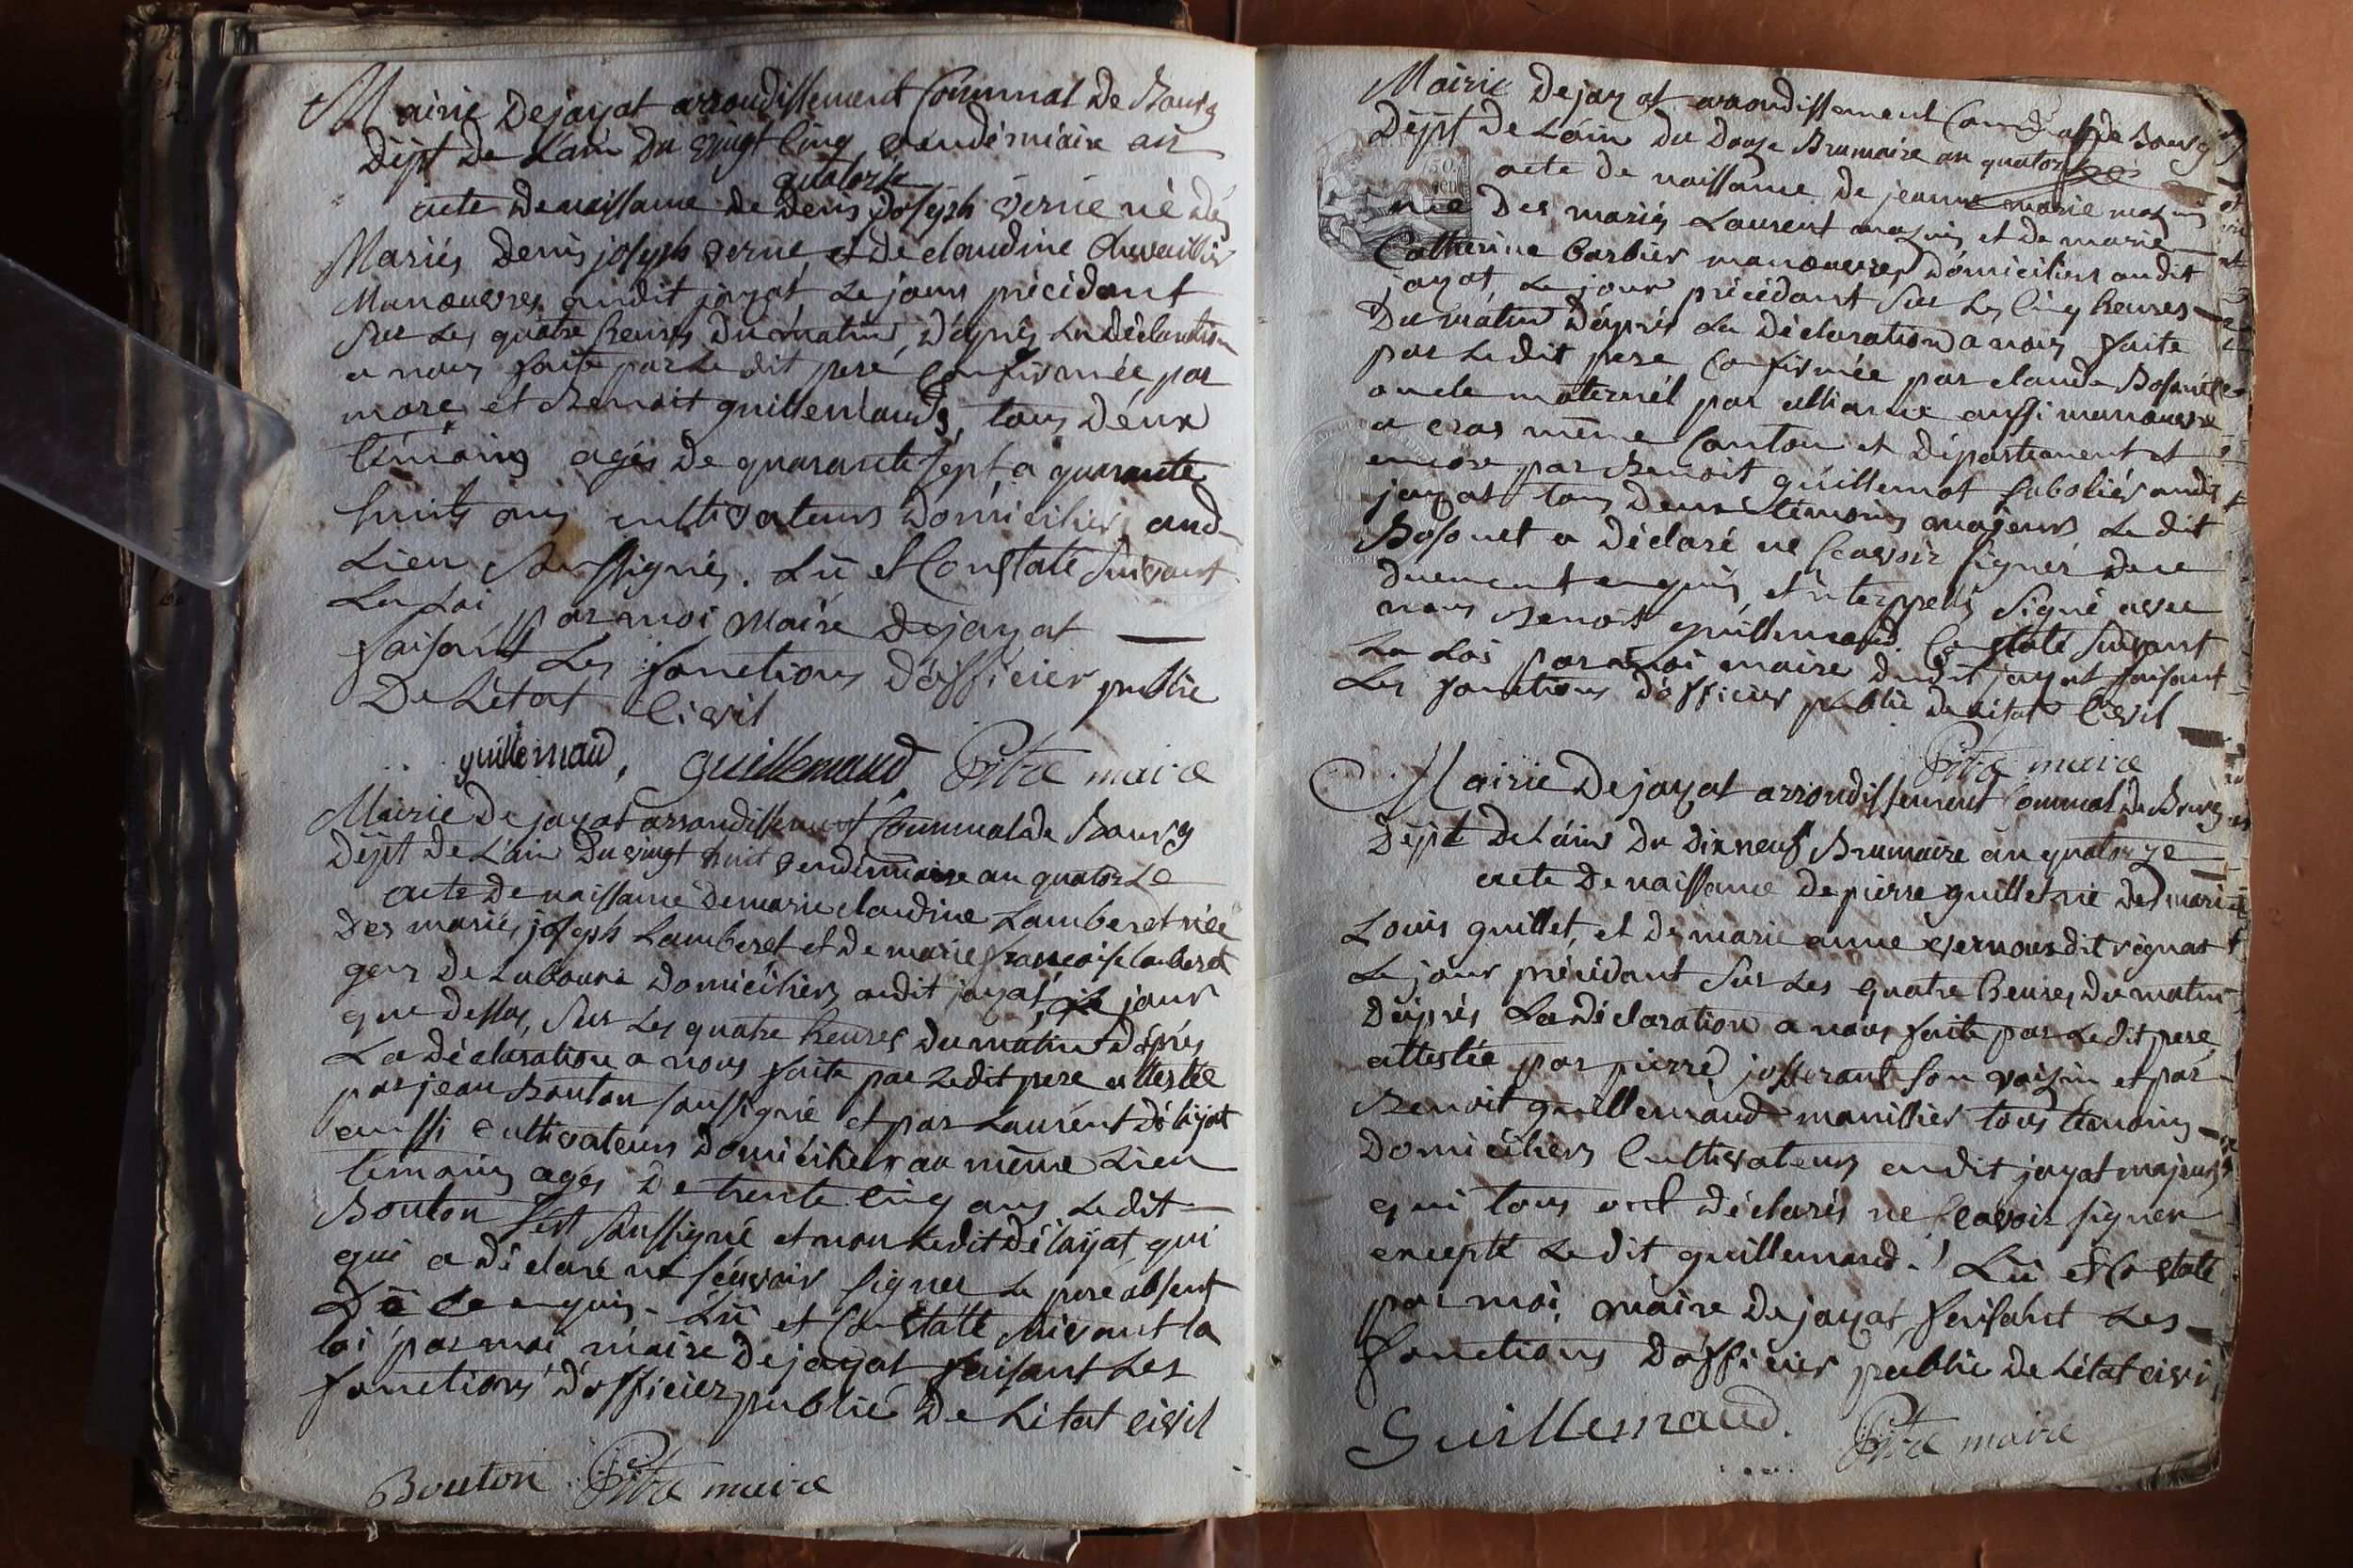 Mairie Dejayat arrondissement Communal De Bourg
Dépt De Lain Du vingt Cinq vendémiaire an
quatorze
acte De naissance De Denis joseph verne né Des
Mariés Denis joseph verne et De claudine chevaillier
Manouvres audit jayat, Le jour précédant
Sur Les quatre heures Du matin, D'après La Déclaration
a nous faite par Le dit pere Confirmée par
marc et Benoit guillemauds, tous Deux
témoins agés De quarante sept a quarante
huits ans cultivateurs Domiciliés aud.
Lieu Soussignés. Lû et Constaté Suivant
La Loi par moi Maire Dejayat
faisant Les fonctions D'officier public
De Létat Civil
guillemaud, guillemaud, Pitre maire
Mairie De jayat arrondissement Communal de Bourg
Dépt De L'ain Du vingt huit vendémiaire an quatorze
acte De naissance De marie claudine Lamberet née
Des mariés joseph Lamberet et De marie francoise lamberet
gens De Labeure Domiciliers audit jayat, jour
que Dessus, Sur Les quatre heures Du matin D'après
La Déclaration a nous faite par Le dit pere attestée
par jean Bouton soussigné et par Laurent Délijat
aussi cultivateurs Domiciliers au même Lieu
témoins agés De trente cinq ans Ledit
Bouton S'est soussigné et non Ledit Délayat, qui
qui a Déclaré ne scavoir signer Le pere absent
De ce enquis. Lû et Constaté Suivant la
loi par moi maire Dejayat faisant Les
fonctions D'officier public De Létat civil
Bouton Pitre maire
Mairie Dejayat arrondissement de Bourg
Dépt De Lain Du Douze Brumaire an quatorze
acte De naissance De jeanne marie mazuis
née Des mariés Laurent mazuis et De marie
Catherine Barbier manouvres Domiciliers audit
jayat, Le jour précédant Sur Les Cinq heures
Du matin D'après La Déclaration a nous faite
par Le dit pere Confirmée par claude Bosonet
oncle maternel par alliance aussi manouvre
a cras même Canton et Département et
encore par Benoit guillemot sabotier audit
jayat tous Deux témoins majeurs Le dit
Bosonet a Déclaré ne scavoir signer De ce
Duement enquis et interppellé, signé avec
nous Benoit guillemaud. Constaté Suivant
La Loi par moi maire Dudit jayat faisant
Les fonctions D'officier public De Létat Civil
Pitre maire
Mairie Dejayat arrondissement Communal De Bourg
Dépt De Lain Du Dix neuf Brumaire an quatorze
acte De naissance De pierre guillet né Des mariés
Louis guillet, et De marie anne vernoux dit
Le jour précédant Sur Les quatre heures Du matin
D'après La Déclaration a nous faite par Le dit pere
attestée par pierre josserand son voisin et par
Benoit guillemaud marillier tous témoins
Domiciliers Cultivateurs audit jayat majeurs
qui tous ont Déclarés ne scavoir signer
excepté Le dit guillemaud. Lû et Constaté
par moi, maire Dejayat, faisant Les
fonctions D'officier public De Létat civil
Guillemaud. Pitre maire